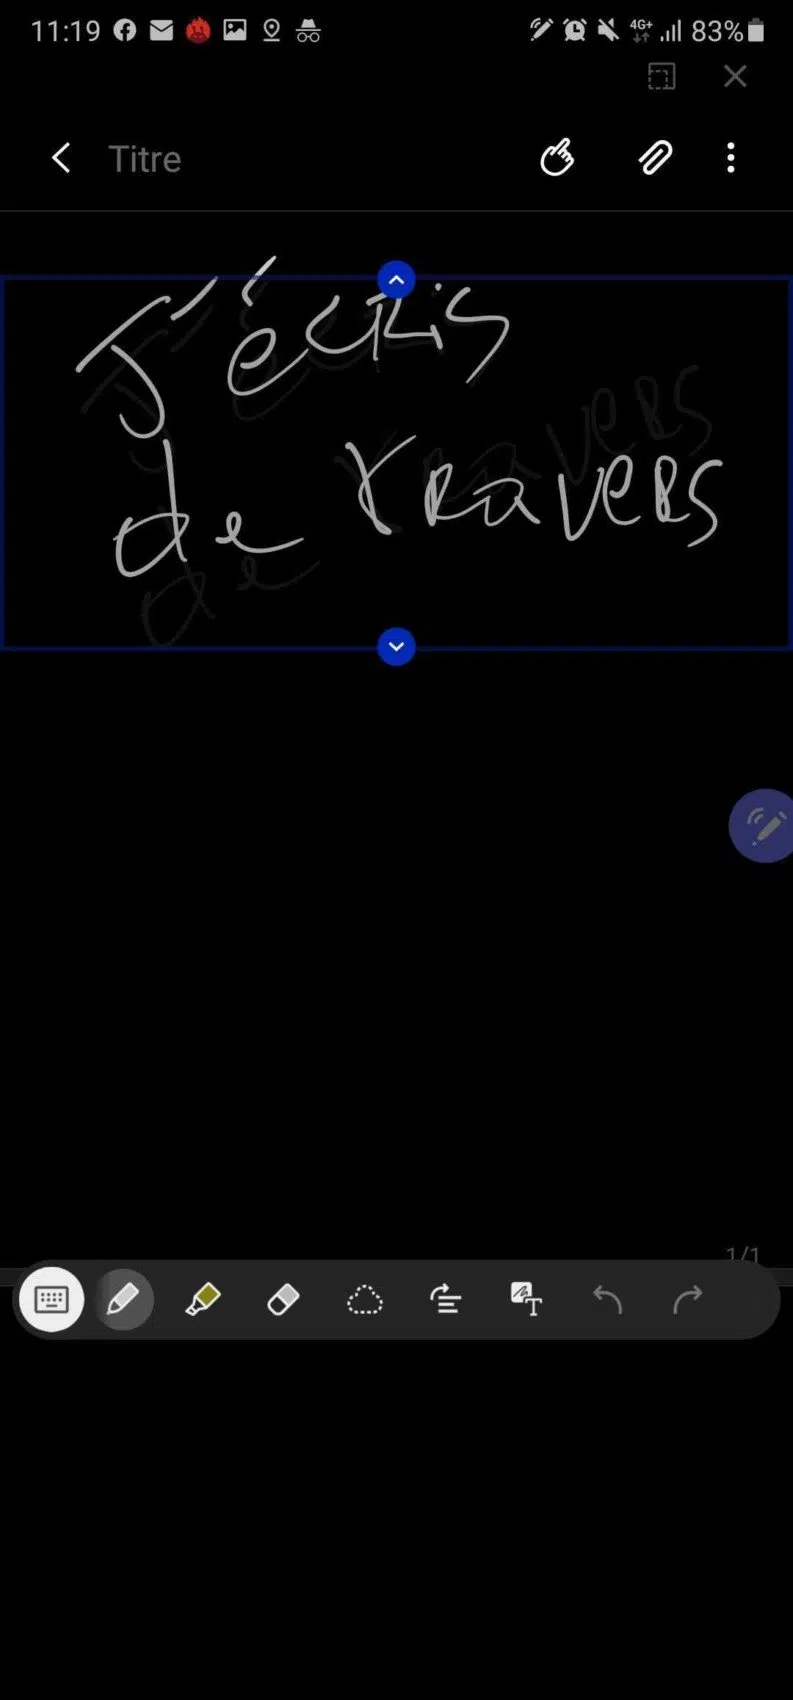 11:19 4G+ 83%
Titre
J'écris
de travers
1/1